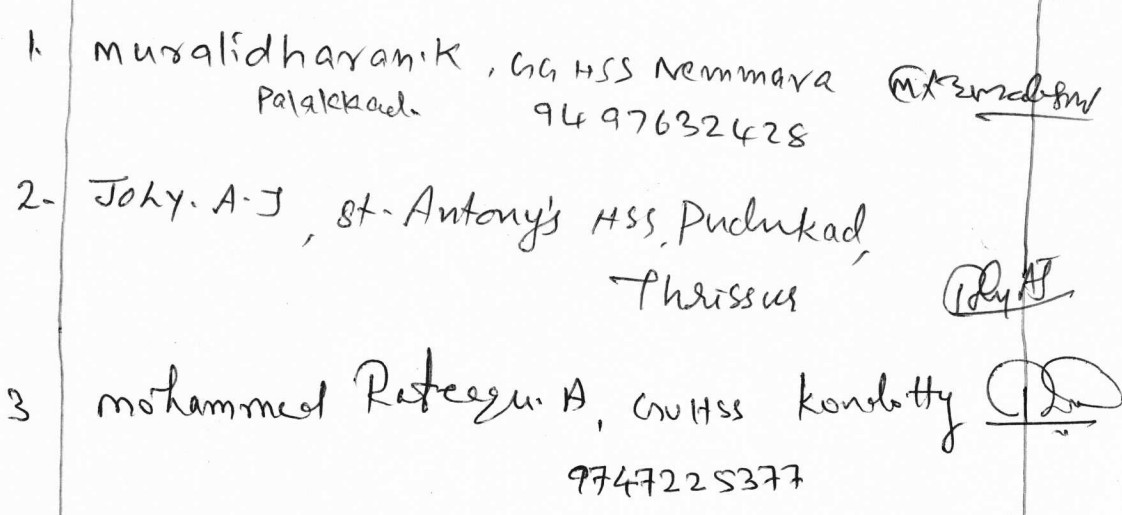 1. muralidharan.k, GG HSS Nemmara
Palakkad.
9497632428
2. Johy. A.J, St. Antony's HSS, Pudukad,
Thrissur
3 mohammed Rafeequ. A, GVHSS kondotty
9747225377